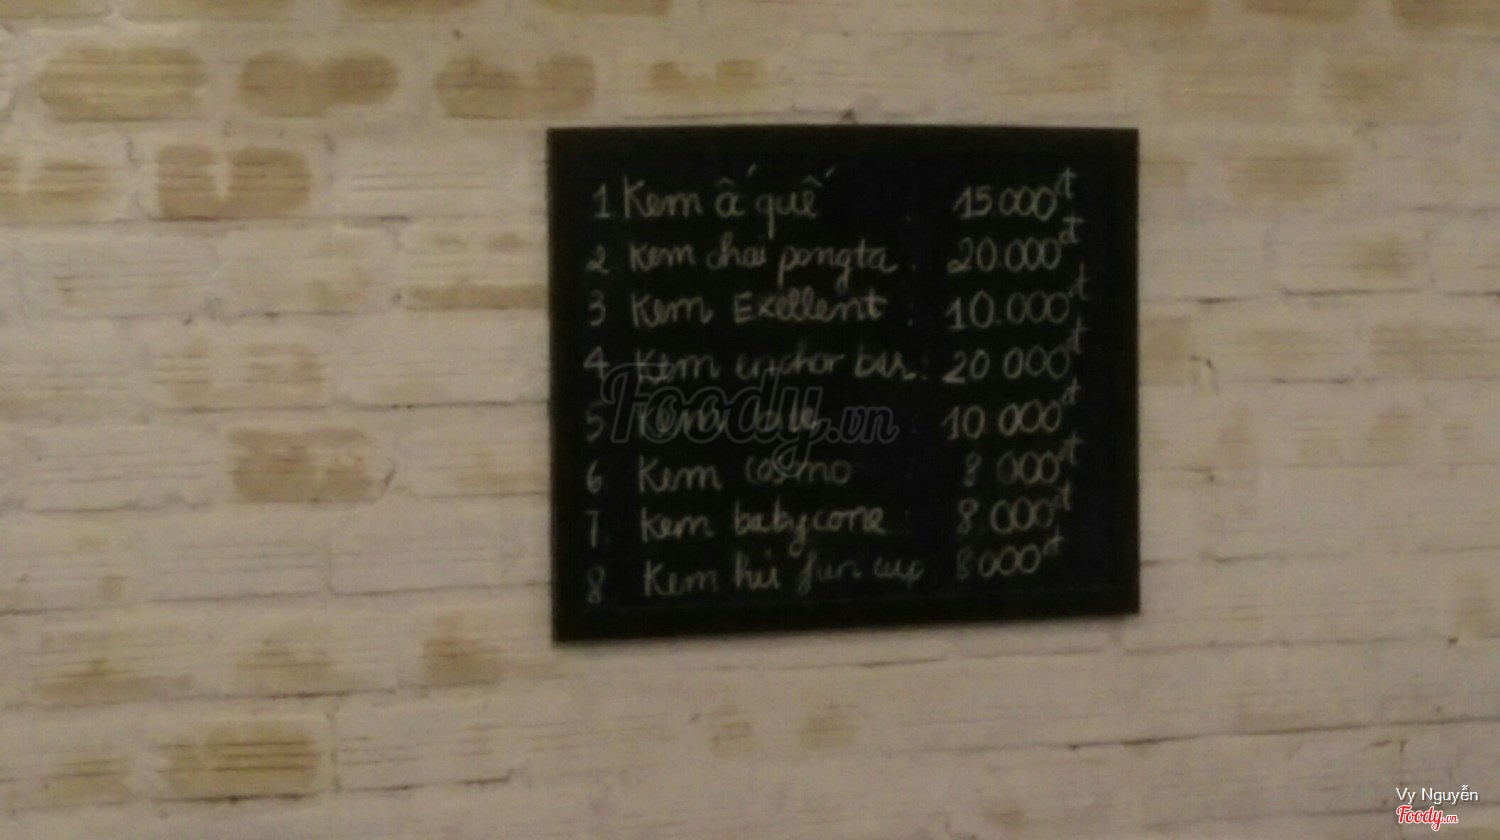 1 Kem ấ quế 15000đ
2 Kem chai pongta : 20.000đ
3 Kem Exellent : 10.000đ
4 Kem anchor bar : 20 000đ
5 Kem 10 000đ
6 Kem cosmo 8 000đ
7. Kem babycone : 8 000đ
8. Kem hủ fun cup 8000đ
Foody.vn
Vy Nguyễn
Foody.vn